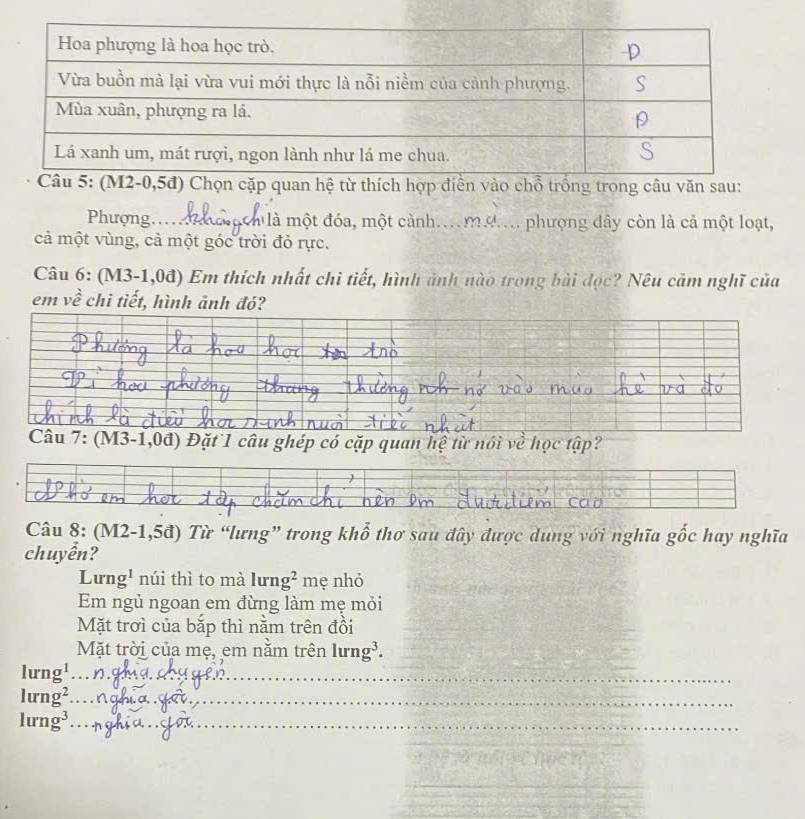 Hoa phượng là hoa học trò. Đ
Vừa buồn mà lại vừa vui mới thực là nỗi niềm của cành phượng. S
Mùa xuân, phượng ra lá. Đ
Lá xanh um, mát rượi, ngon lành như lá me chua. S
Câu 5: (M2-0,5đ) Chọn cặp quan hệ từ thích hợp điền vào chỗ trống trong câu văn sau:
Phượng.....không chỉ là một đóa, một cành....mà.... phượng đây còn là cả một loạt,
cả một vùng, cả một góc trời đỏ rực.
Câu 6: (M3-1,0đ) Em thích nhất chi tiết, hình ảnh nào trong bài đọc? Nêu cảm nghĩ của
em về chi tiết, hình ảnh đó?
Phượng là hoa học trò
Vì hoa phượng thường nở vào mùa hè và đó
chính là điều học sinh nuối tiếc nhất
Câu 7: (M3-1,0đ) Đặt 1 câu ghép có cặp quan hệ từ nói về học tập?
em học tập chăm chỉ nên em được điểm cao
Câu 8: (M2-1,5đ) Từ “lưng” trong khổ thơ sau đây được dung với nghĩa gốc hay nghĩa
chuyển?
Lưng¹ núi thì to mà lưng² mẹ nhỏ
Em ngủ ngoan em đừng làm mẹ mỏi
Mặt trơi của bắp thì nằm trên đồi
Mặt trời của mẹ, em nằm trên lưng³.
lưng¹...nghĩa chuyển
lưng²....nghĩa gốc
lưng³....nghĩa gốc